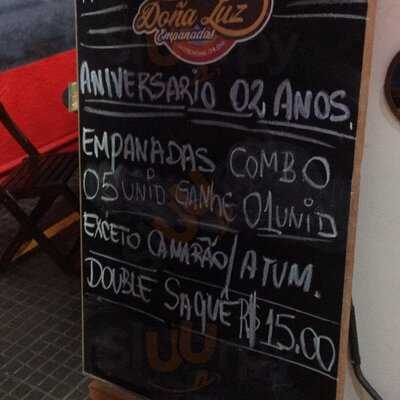 Doña Luz
Empanadas
ANIVERSARIO 02 ANOS.
EMPANADAS COMBO
05 UNID GANHE 01 UNID
EXCETO CAMARÃO / ATUM.
DOUBLE SAQUÊ R$ 15.00